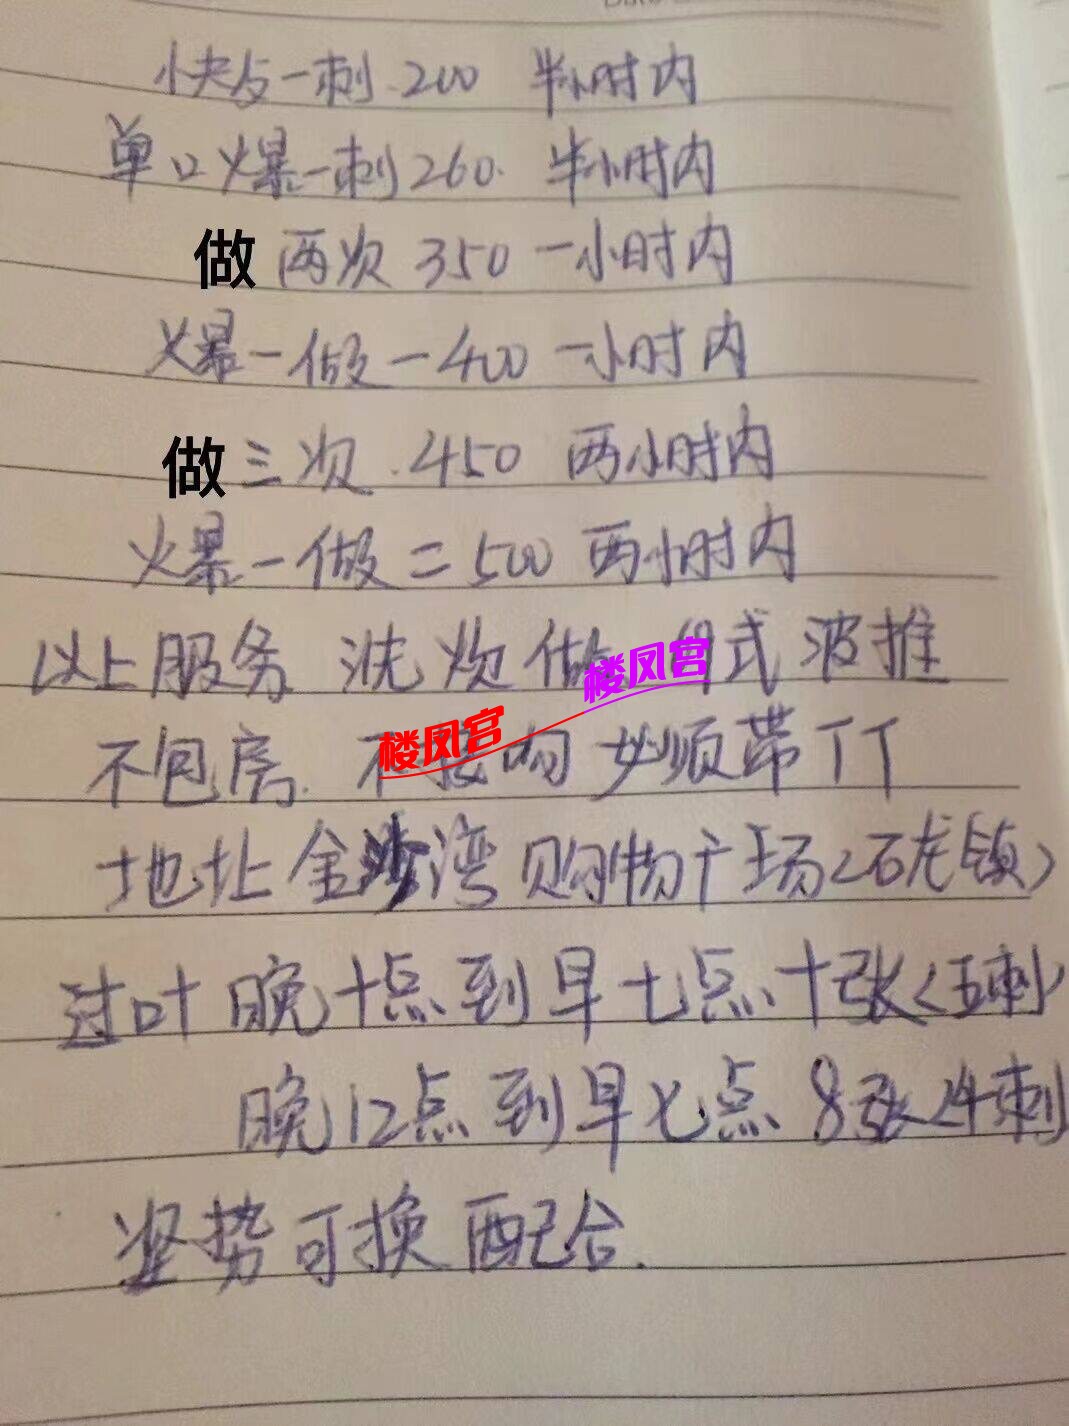 小快与一刺.200 半小时内
单口爆一刺260. 半小时内
做 两次 350 一小时内
爆一做一400 一小时内
做 三次.450 两小时内
爆一做二500 两小时内
以上服务 洗 吹 做 式 波推
楼凤宫
不包房. 不接吻 必须带TT
楼凤宫
地址金沙湾购物广场(石龙镇)
过叶 晚十点到早七点十张(五刺)
晚12点到早七点 8张(4刺
姿势可换 配合.